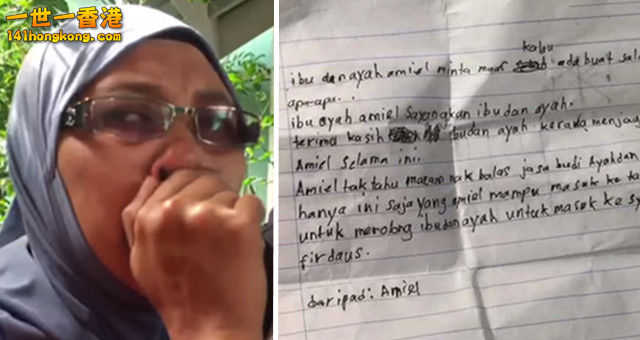 一世一香港
141hongkong.com
kalau
ibu dan ayah amiel minta maaf ada buat sala
apa-apa..
ibu ayah amiel sayangkan ibu dan ayah.
terima kasih ibu dan ayah kerana menjag
Amiel selama ini.
Amiel tak tahu macam nak balas jasa budi Ayah dan
hanya ini saja yang amiel mampu masuk ke ta
untuk menolong ibu dan ayah untuk masuk ke sy
firdaus.
daripada: Amiel